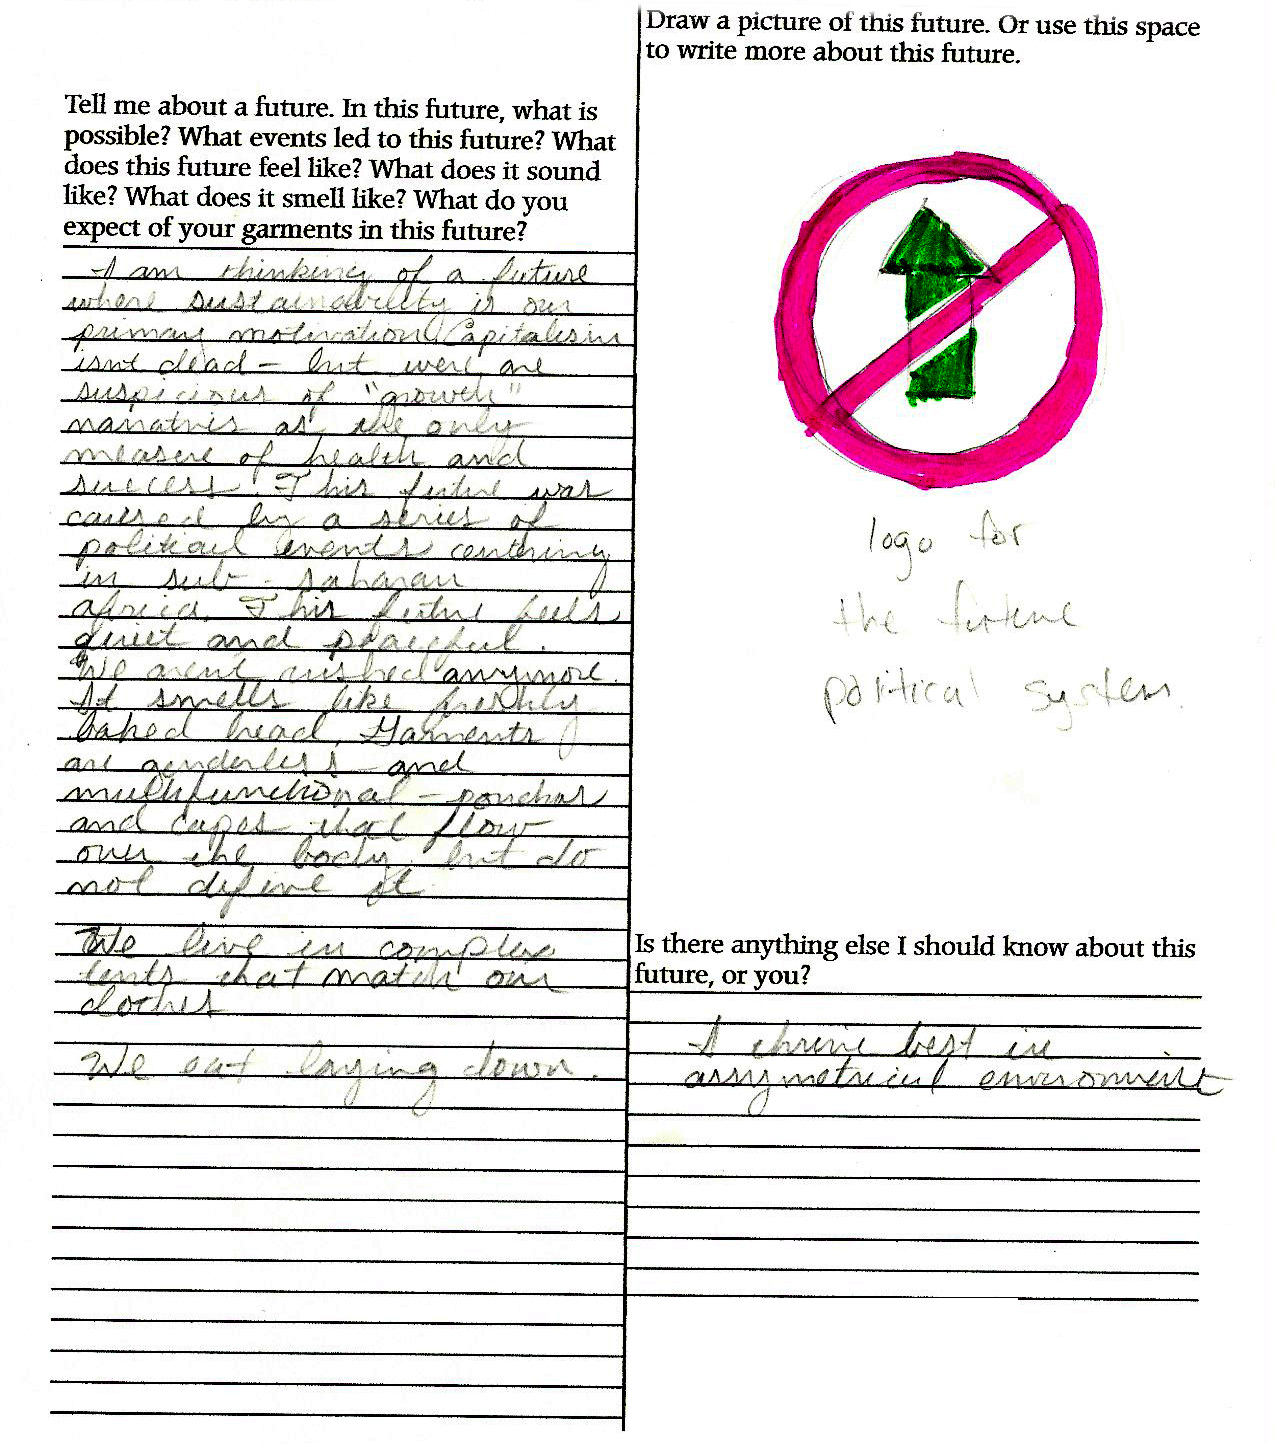 Tell me about a future. In this future, what is
possible? What events led to this future? What
does this future feel like? What does it sound
like? What does it smell like? What do you
expect of your garments in this future?
I am thinking of a future
where sustainability is our
primary motivation. Capitalism
isnt dead - but were are
suspicious of "growth"
narratives as the only
measure of health and
success. This future was
caused by a series of
political events centering
in sub-saharan
africa. This future feels
quiet and peaceful.
We arent rushed anymore.
It smells like freshly
baked bread. Garments
are genderless and
multifunctional - ponchos
and capes that flow
over the body but do
not define it
We live in complex
tents that match our
clothes
We eat laying down.
Draw a picture of this future. Or use this space
to write more about this future.
logo for
the future
political system.
Is there anything else I should know about this
future, or you?
I thrive best in
assymetrical environment